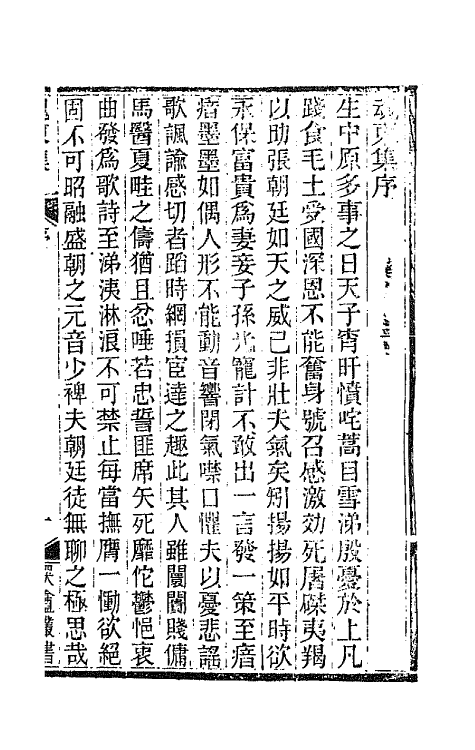 魂東集序
生中原多事之日天子宵旰憤咤蒿目雪涕殷憂於上凡
踐食毛土受國深恩不能奮身號召感激効死屠磔夷羯
以助張朝廷如天之威已非壯夫氣矣矧揚揚如平時欲
永保富貴爲妻妾子孫光寵計不敢出一言發一策至瘖
瘖墨墨如偶人形不能動音響閉氣噤口懼夫以憂悲謡
歌諷諭感切者蹈時網損宦達之趣此其人雖闤闠賤傭
馬醫夏畦之儔猶且忿唾若忠誓匪席矢死靡佗鬱悒衷
曲發爲歌詩至涕洟淋浪不可禁止每當撫膺一慟欲絕
固不可昭融盛朝之元音少裨夫朝廷徒無聊之極思哉
東集
序
一
叢書